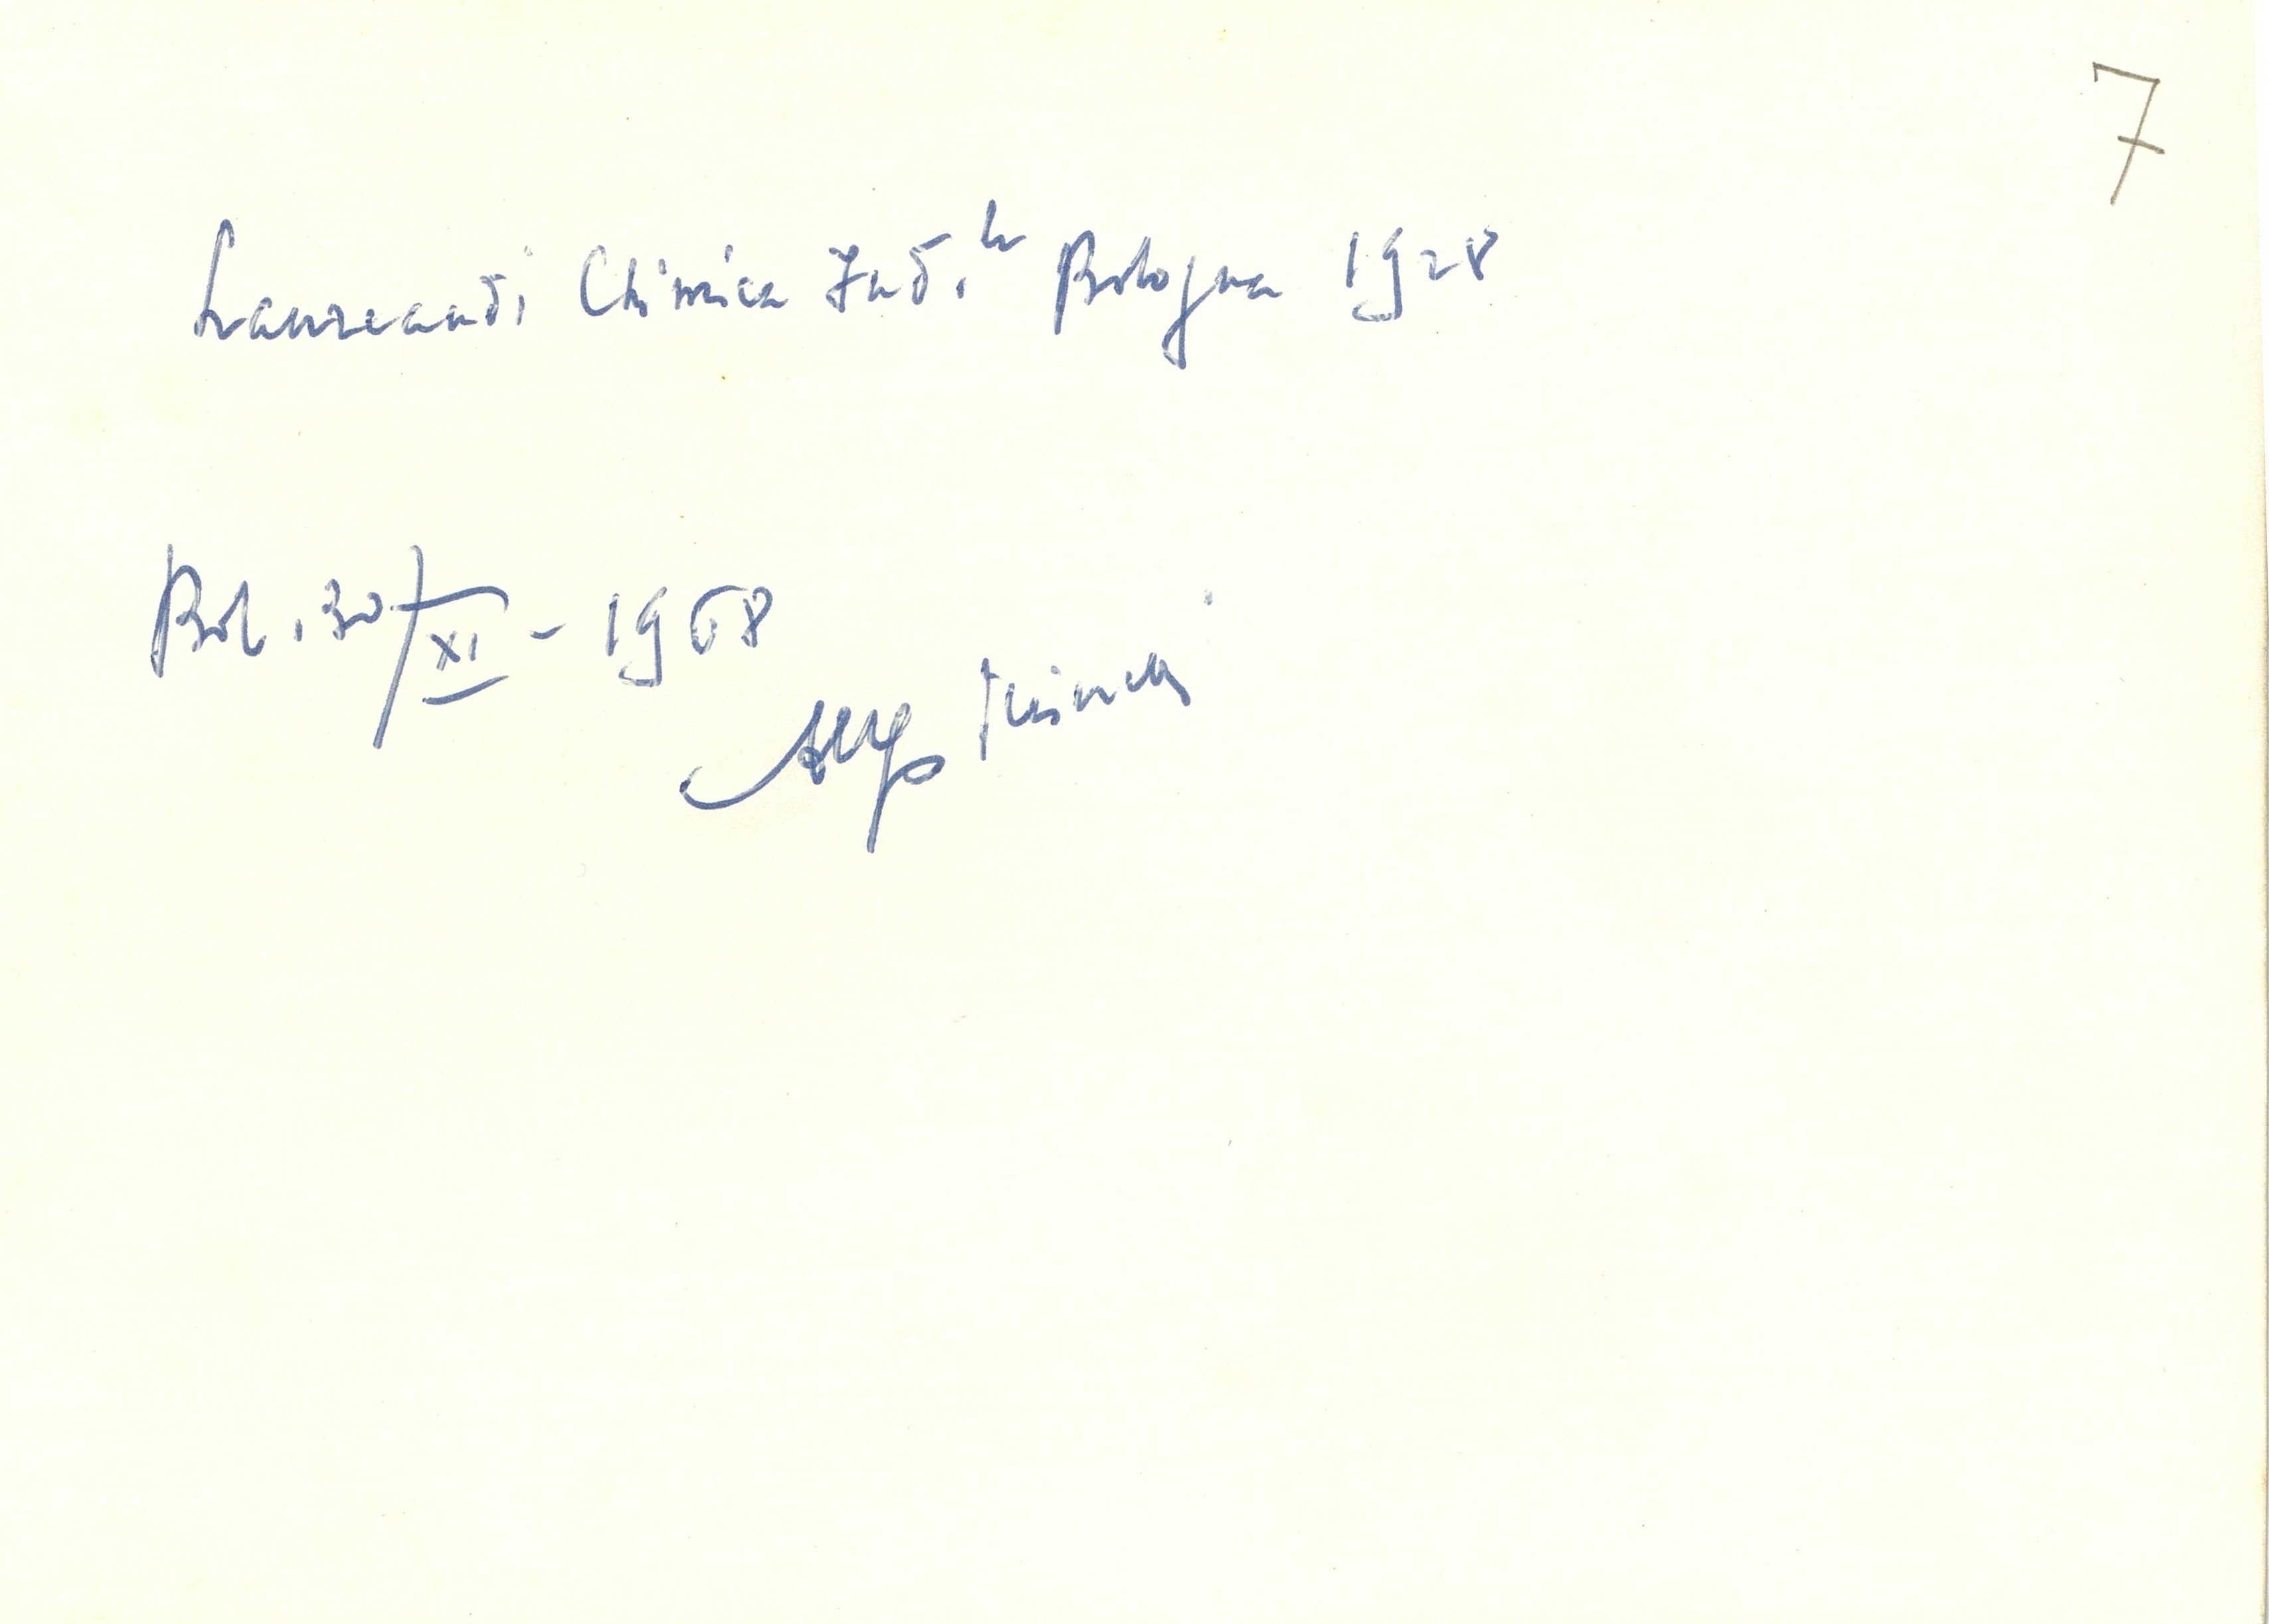 7
Laureandi Chimica Ind.le Bologna 1928
Bol. 30/XI - 1968